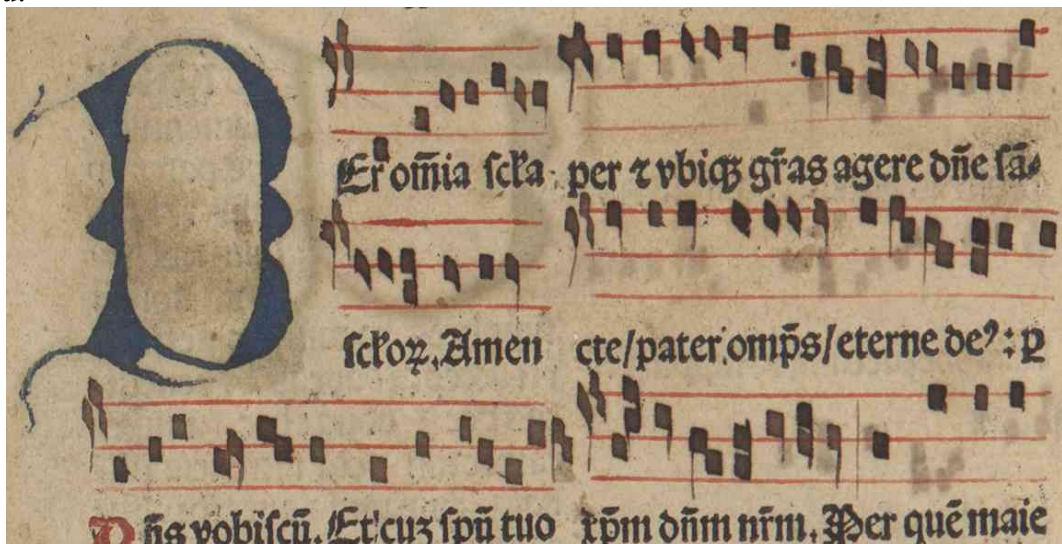 Er om̄ia ſcl̄a
ſcl̄oꝝ. Amen
Dn̄s vobiſcū. Et cuz ſpū tuo
per ⁊ vbiqꝫ gr̄as agere dn̄e ſā⸗
cte/pater omp̄s/eterne deꝰ: ꝑ
xp̄m dn̄m nr̄m. Per quē maie